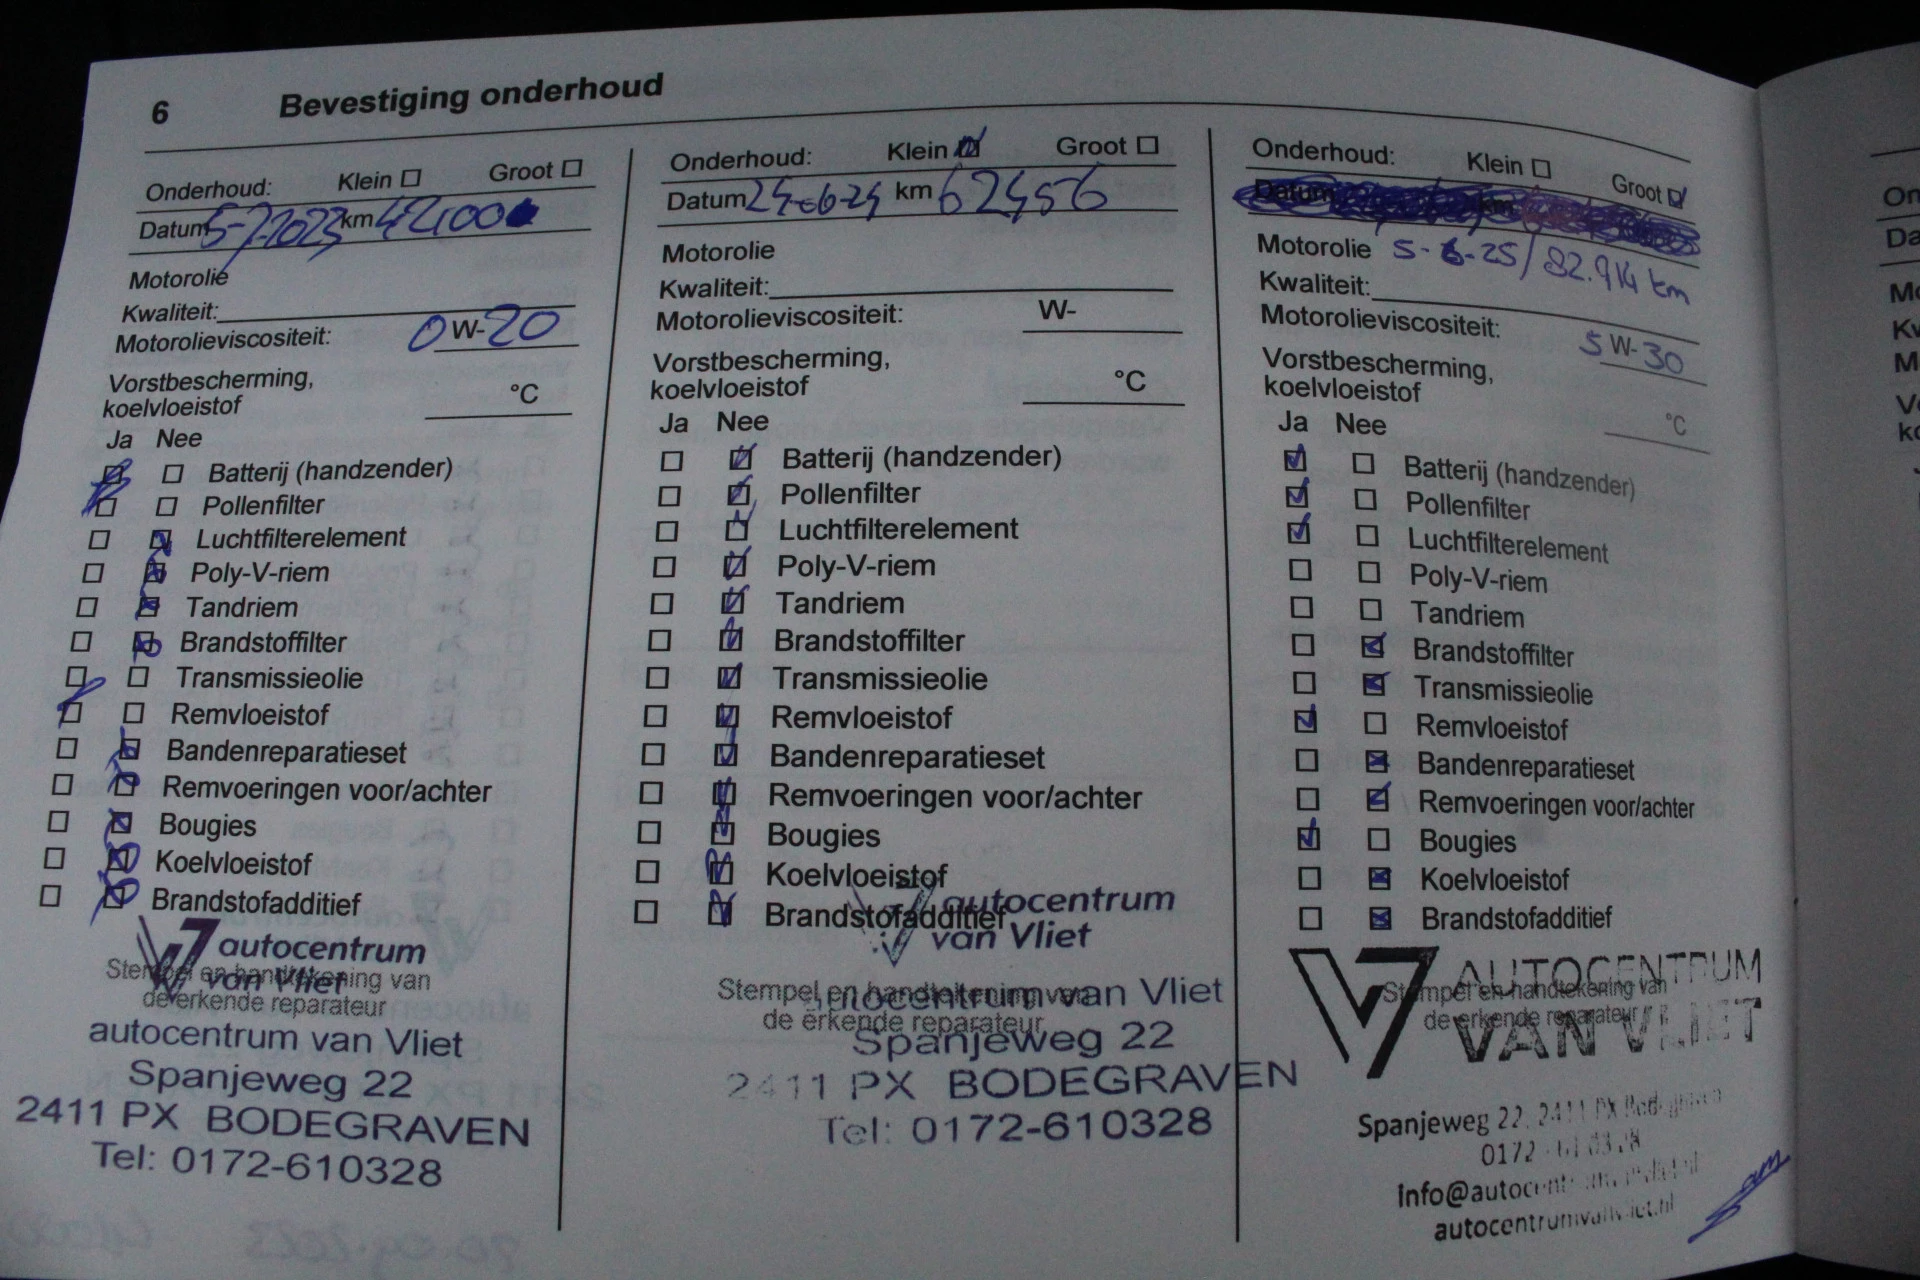 6 Bevestiging onderhoud
Onderhoud: Klein Groot
Datum 5-7-2023 km
Motorolie
Kwaliteit:
Motorolieviscositeit: 0 W-20
Vorstbescherming,
koelvloeistof °C
Ja Nee
Batterij (handzender)
Pollenfilter
Luchtfilterelement
Poly-V-riem
Tandriem
Brandstoffilter
Transmissieolie
Remvloeistof
Bandenreparatieset
Remvoeringen voor/achter
Bougies
Koelvloeistof
Brandstofadditief
autocentrum
van Vliet
Stempel en handtekening van
de erkende reparateur
autocentrum van Vliet
Spanjeweg 22
2411 PX BODEGRAVEN
Tel: 0172-610328
Onderhoud: Klein Groot
Datum 24-6-24 km 62456
Motorolie
Kwaliteit:
Motorolieviscositeit: W-
Vorstbescherming,
koelvloeistof °C
Ja Nee
Batterij (handzender)
Pollenfilter
Luchtfilterelement
Poly-V-riem
Tandriem
Brandstoffilter
Transmissieolie
Remvloeistof
Bandenreparatieset
Remvoeringen voor/achter
Bougies
Koelvloeistof
Brandstofadditief
autocentrum
van Vliet
Stempel en handtekening van
de erkende reparateur
autocentrum van Vliet
Spanjeweg 22
2411 PX BODEGRAVEN
Tel: 0172-610328
Onderhoud: Klein Groot
Datum km
Motorolie 5-6-25/82.914 km
Kwaliteit:
Motorolieviscositeit: 5 W-30
Vorstbescherming,
koelvloeistof °C
Ja Nee
Batterij (handzender)
Pollenfilter
Luchtfilterelement
Poly-V-riem
Tandriem
Brandstoffilter
Transmissieolie
Remvloeistof
Bandenreparatieset
Remvoeringen voor/achter
Bougies
Koelvloeistof
Brandstofadditief
AUTOCENTRUM
VAN VLIET
Stempel en handtekening van
de erkende reparateur
Spanjeweg 22, 2411 PX Bodegraven
0172
autocentrumvanvliet.nl